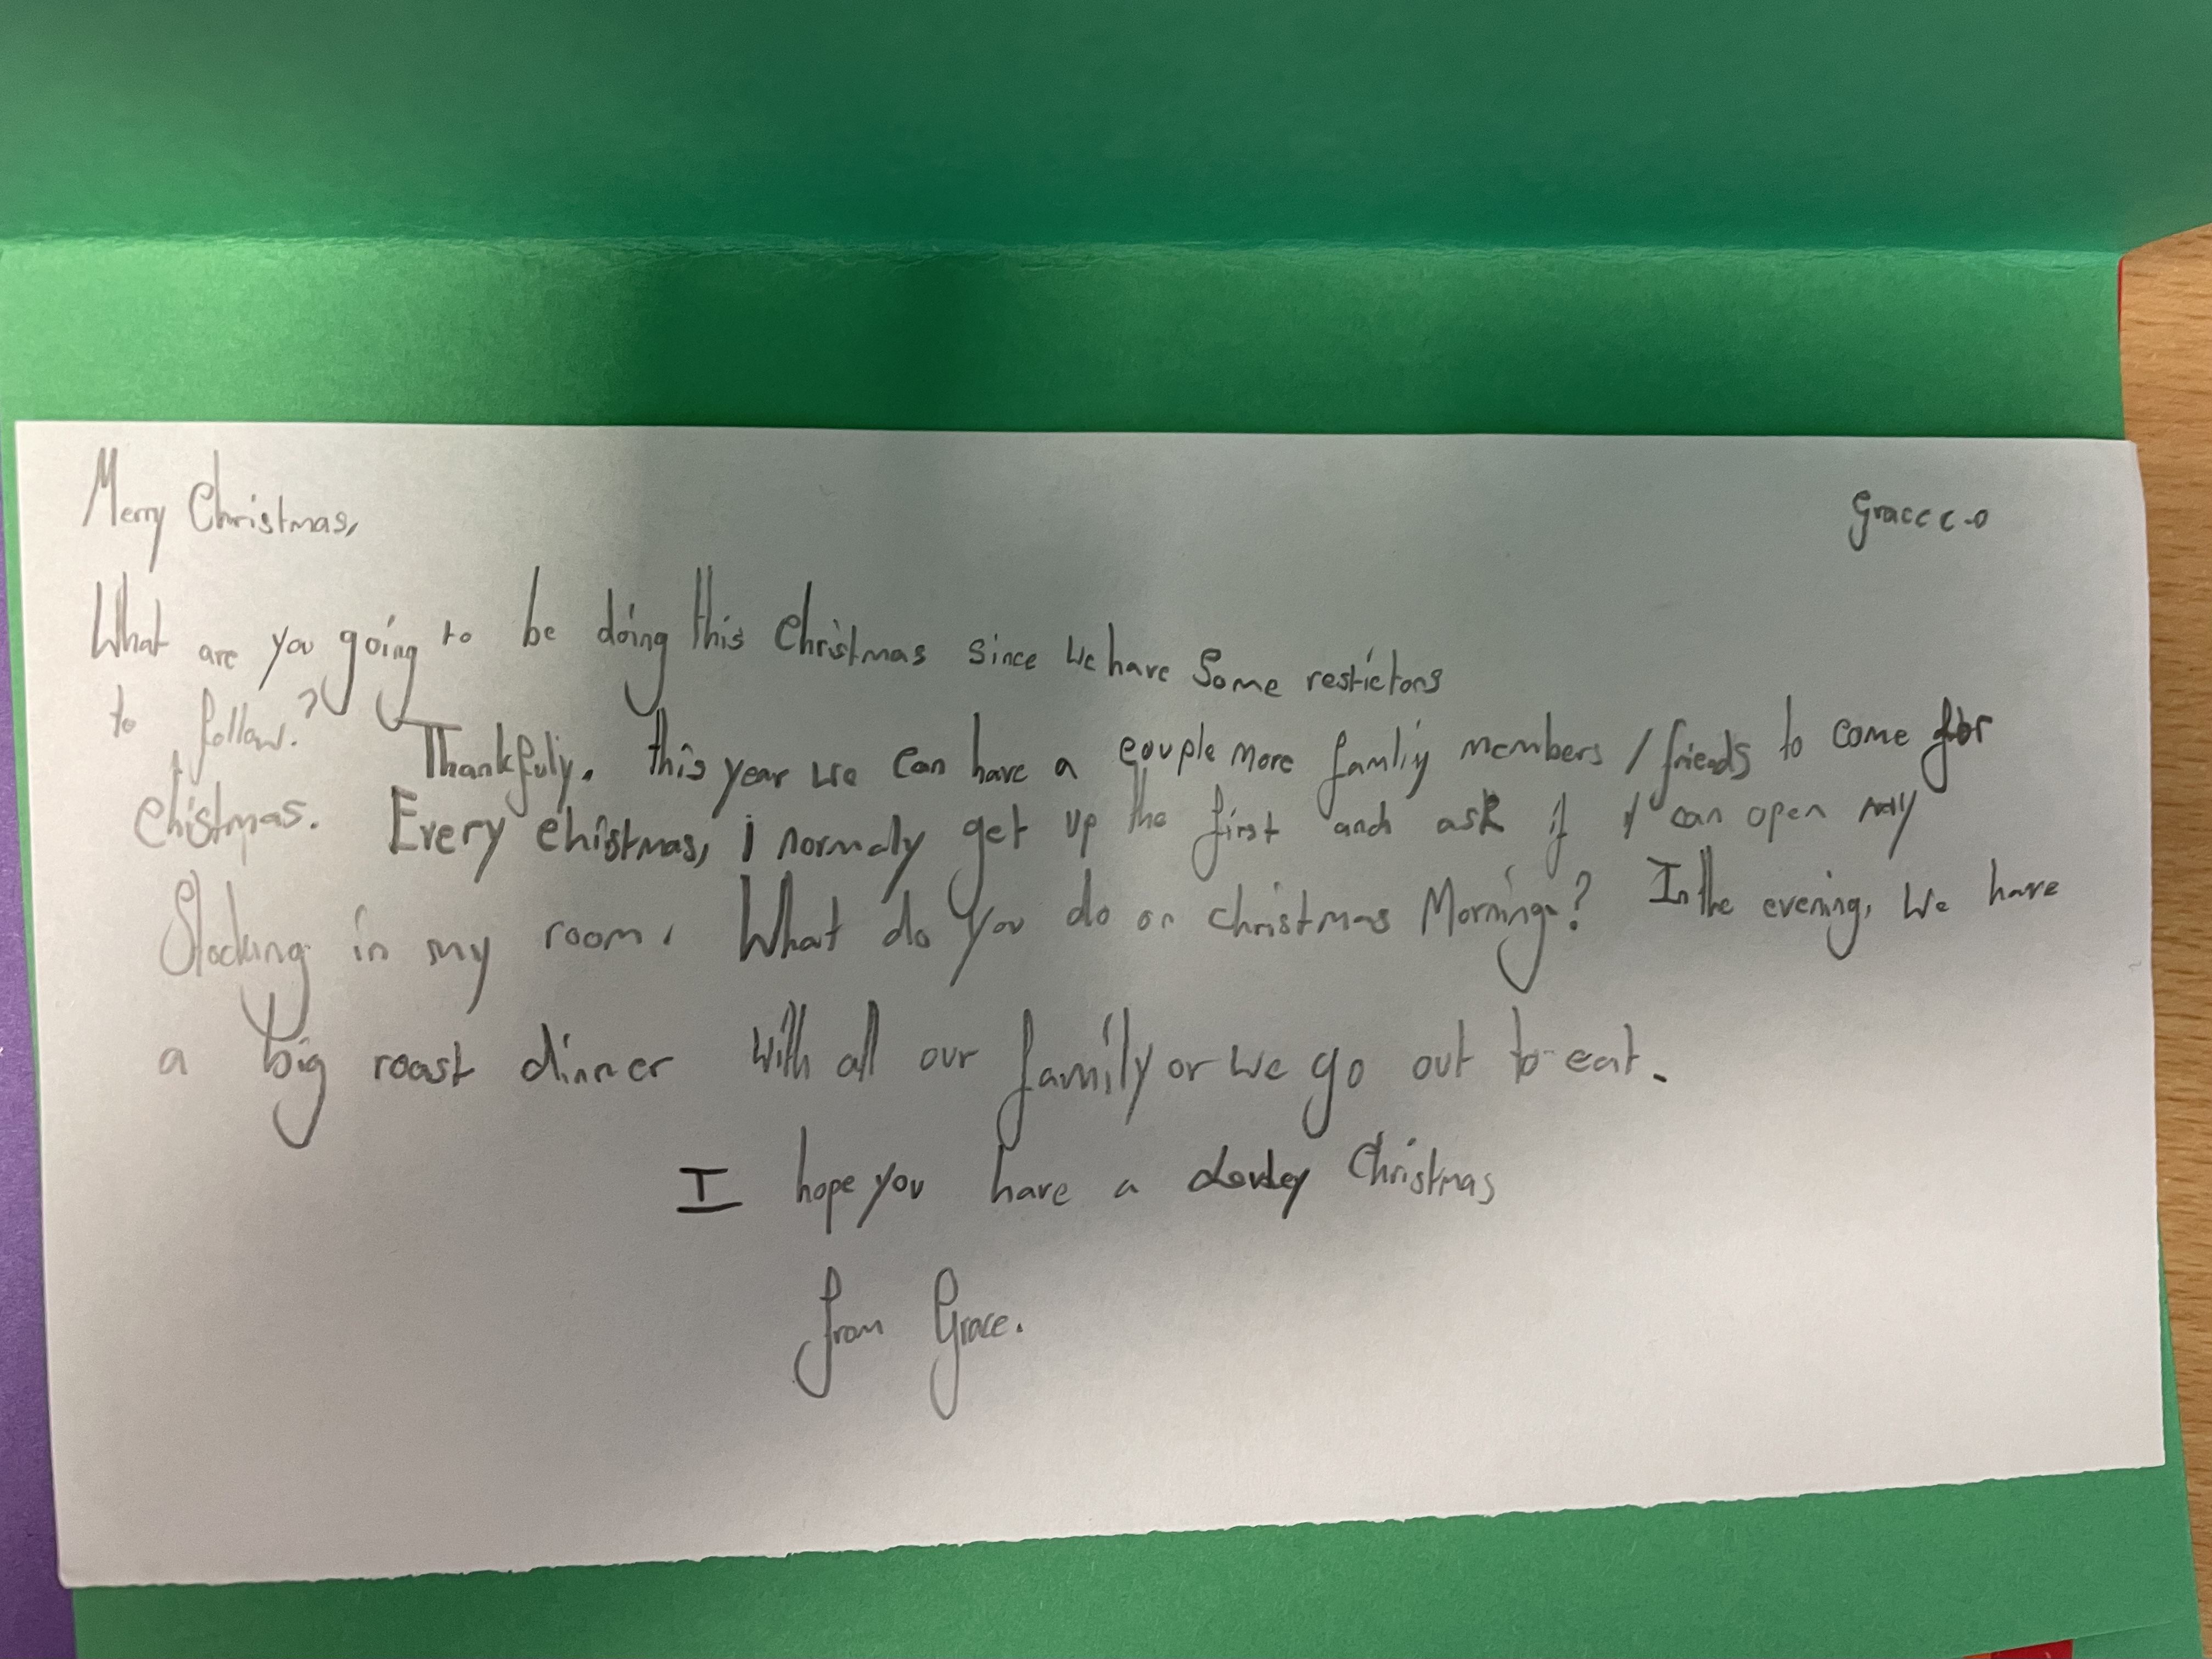 Merry Christmas,
Grace c-o
What are you going to be doing this Christmas since we have Some restictons
to follow.?
Thankfuly. this year we can have a couple more famliy members / friends to come for
Chistmas. Every chistmas, i normaly get up the first and ask if I can open my
Stocking in my room. What do you do on christmas Morning? In the evening, we have
a big roast dinner with all our family or we go out to eat.
I hope you have a Lovley Christmas
from Grace.